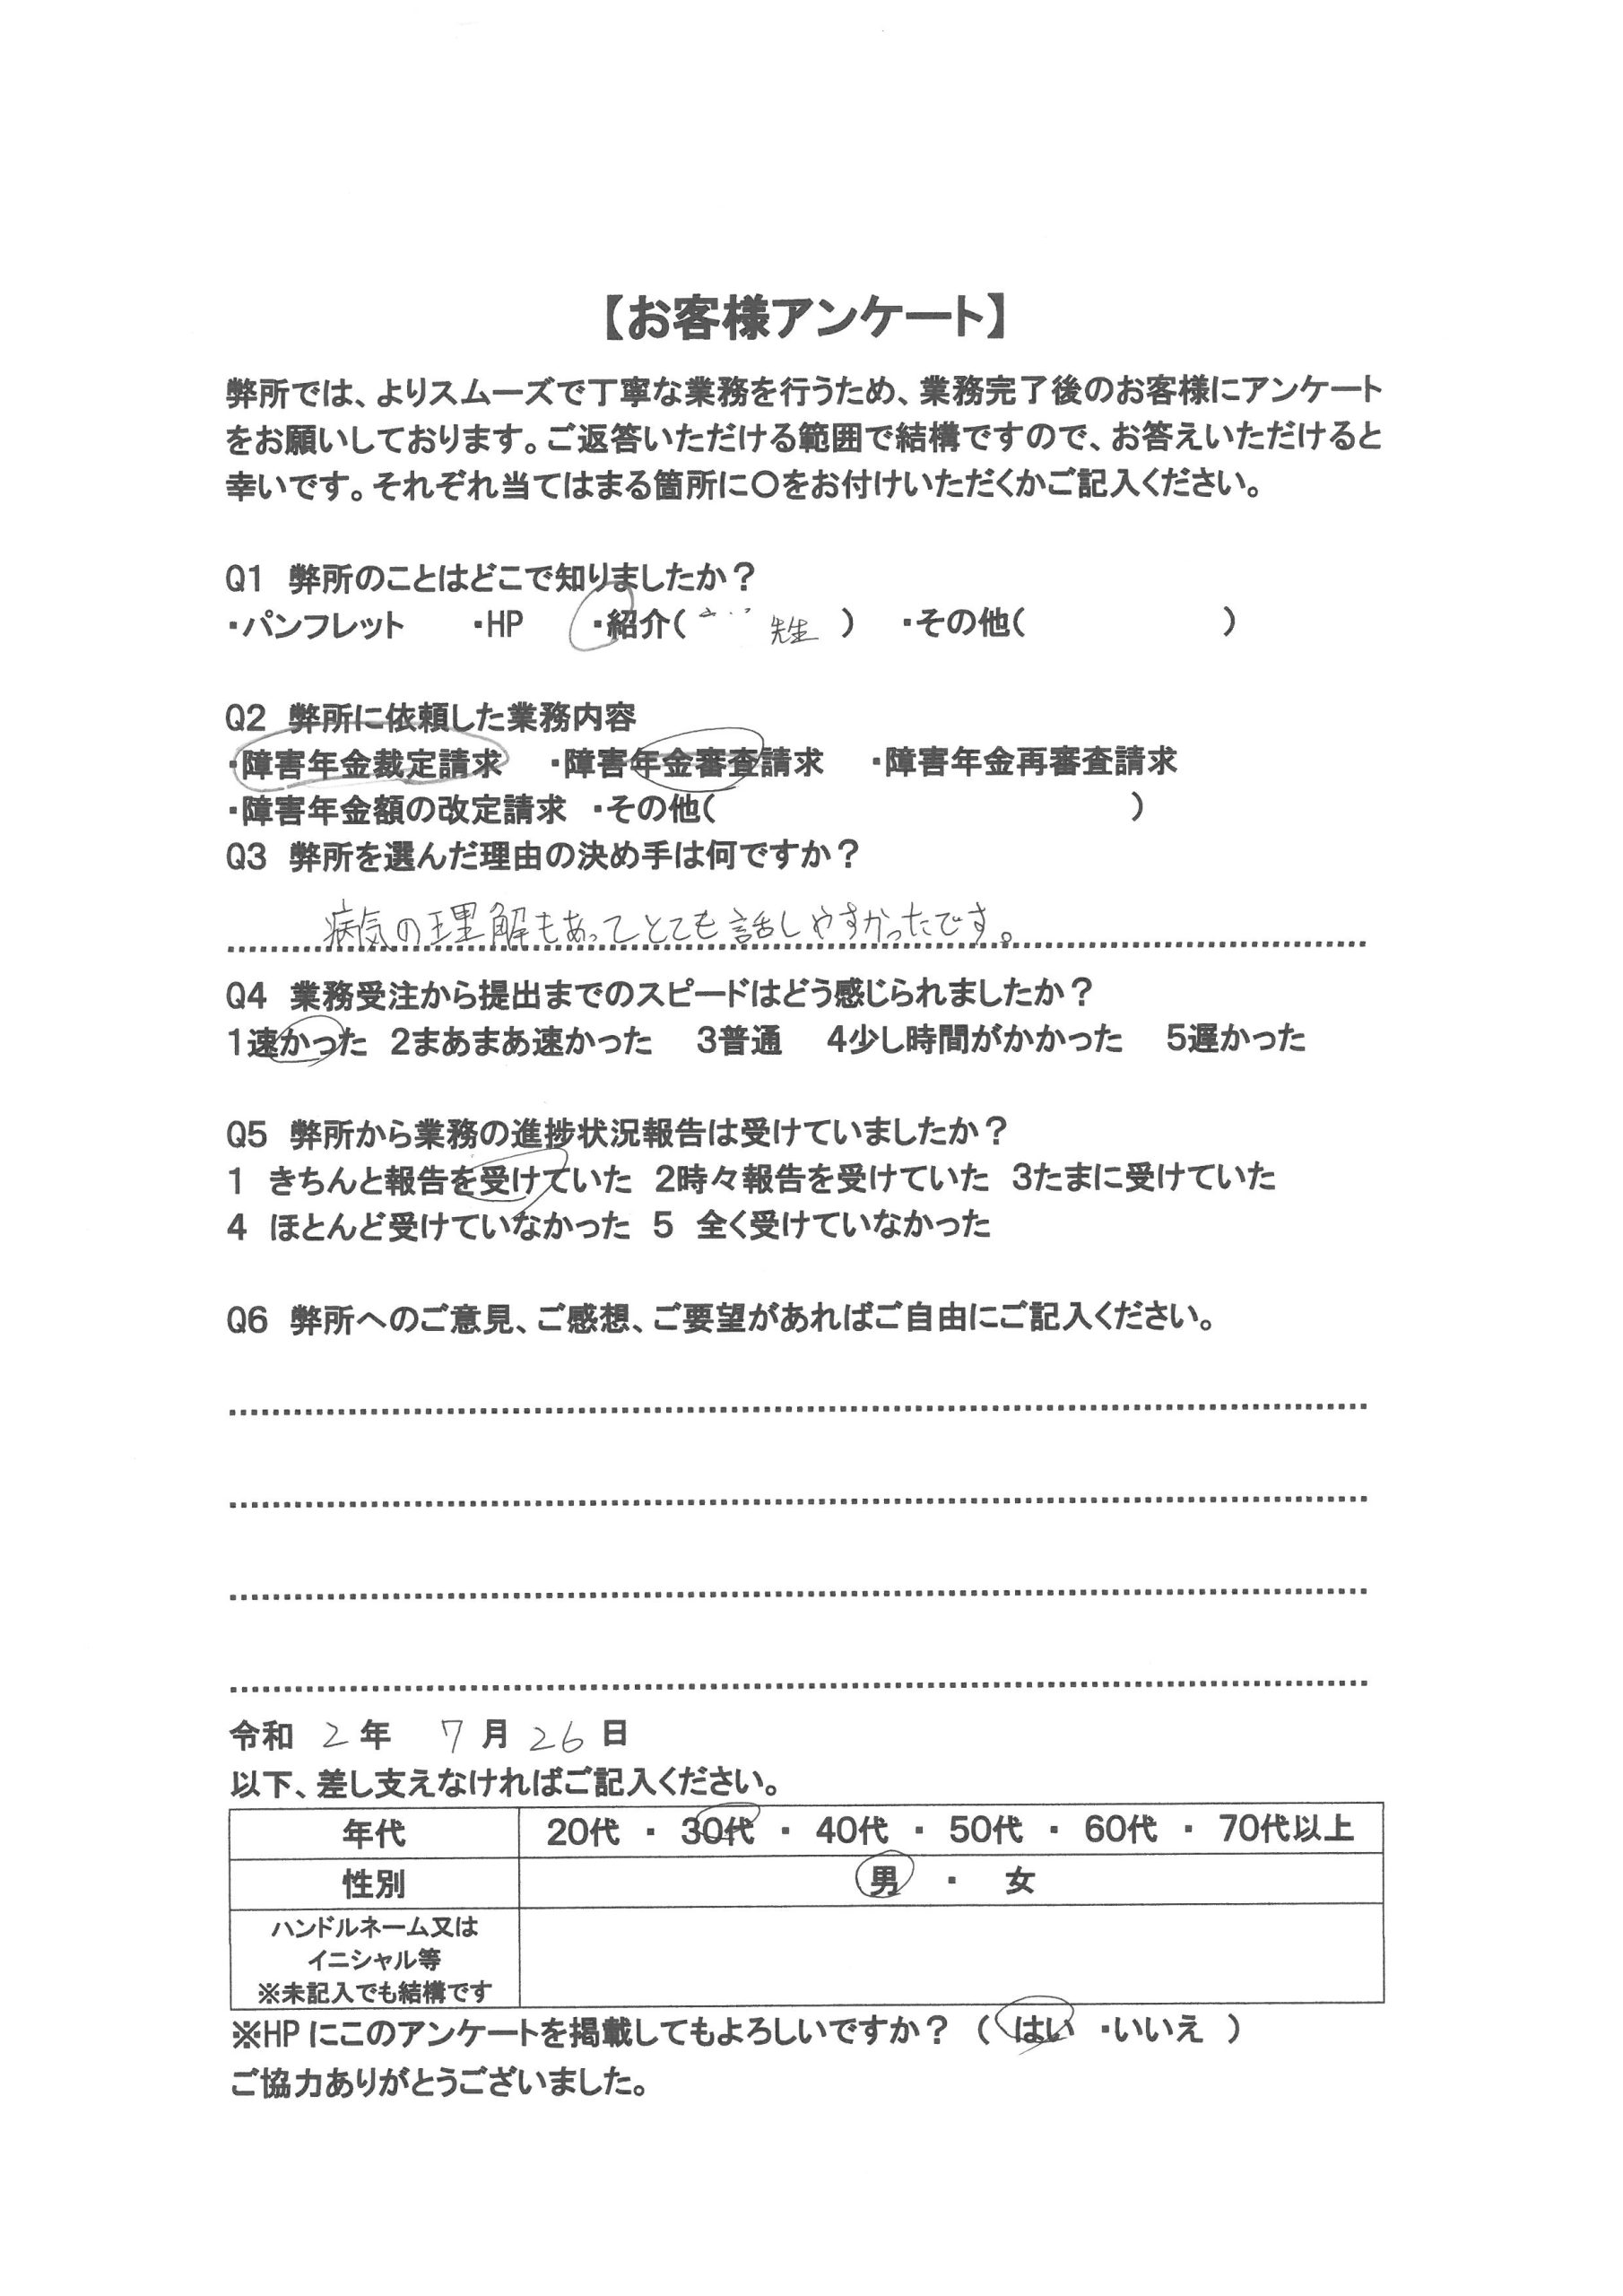 【お客様アンケート】
弊所では、よりスムーズで丁寧な業務を行うため、業務完了後のお客様にアンケート
をお願いしております。ご返答いただける範囲で結構ですので、お答えいただけると
幸いです。それぞれ当てはまる箇所に〇をお付けいただくかご記入ください。
Q1 弊所のことはどこで知りましたか？
・パンフレット ・HP ・紹介( 先生 ) ・その他( )
Q2 弊所に依頼した業務内容
・障害年金裁定請求 ・障害年金審査請求 ・障害年金再審査請求
・障害年金額の改定請求 ・その他( )
Q3 弊所を選んだ理由の決め手は何ですか？
病気の理解もあってとても話しやすかったです。
Q4 業務受注から提出までのスピードはどう感じられましたか？
1速かった 2まあまあ速かった 3普通 4少し時間がかかった 5遅かった
Q5 弊所から業務の進捗状況報告は受けていましたか？
1 きちんと報告を受けていた 2時々報告を受けていた 3たまに受けていた
4 ほとんど受けていなかった 5 全く受けていなかった
Q6 弊所へのご意見、ご感想、ご要望があればご自由にご記入ください。
令和 2 年 7 月 26 日
以下、差し支えなければご記入ください。
年代 20代 ・ 30代 ・ 40代 ・ 50代 ・ 60代 ・ 70代以上
性別 男 ・ 女
ハンドルネーム又は
イニシャル等
※未記入でも結構です
※HPにこのアンケートを掲載してもよろしいですか？ ( はい ・いいえ )
ご協力ありがとうございました。